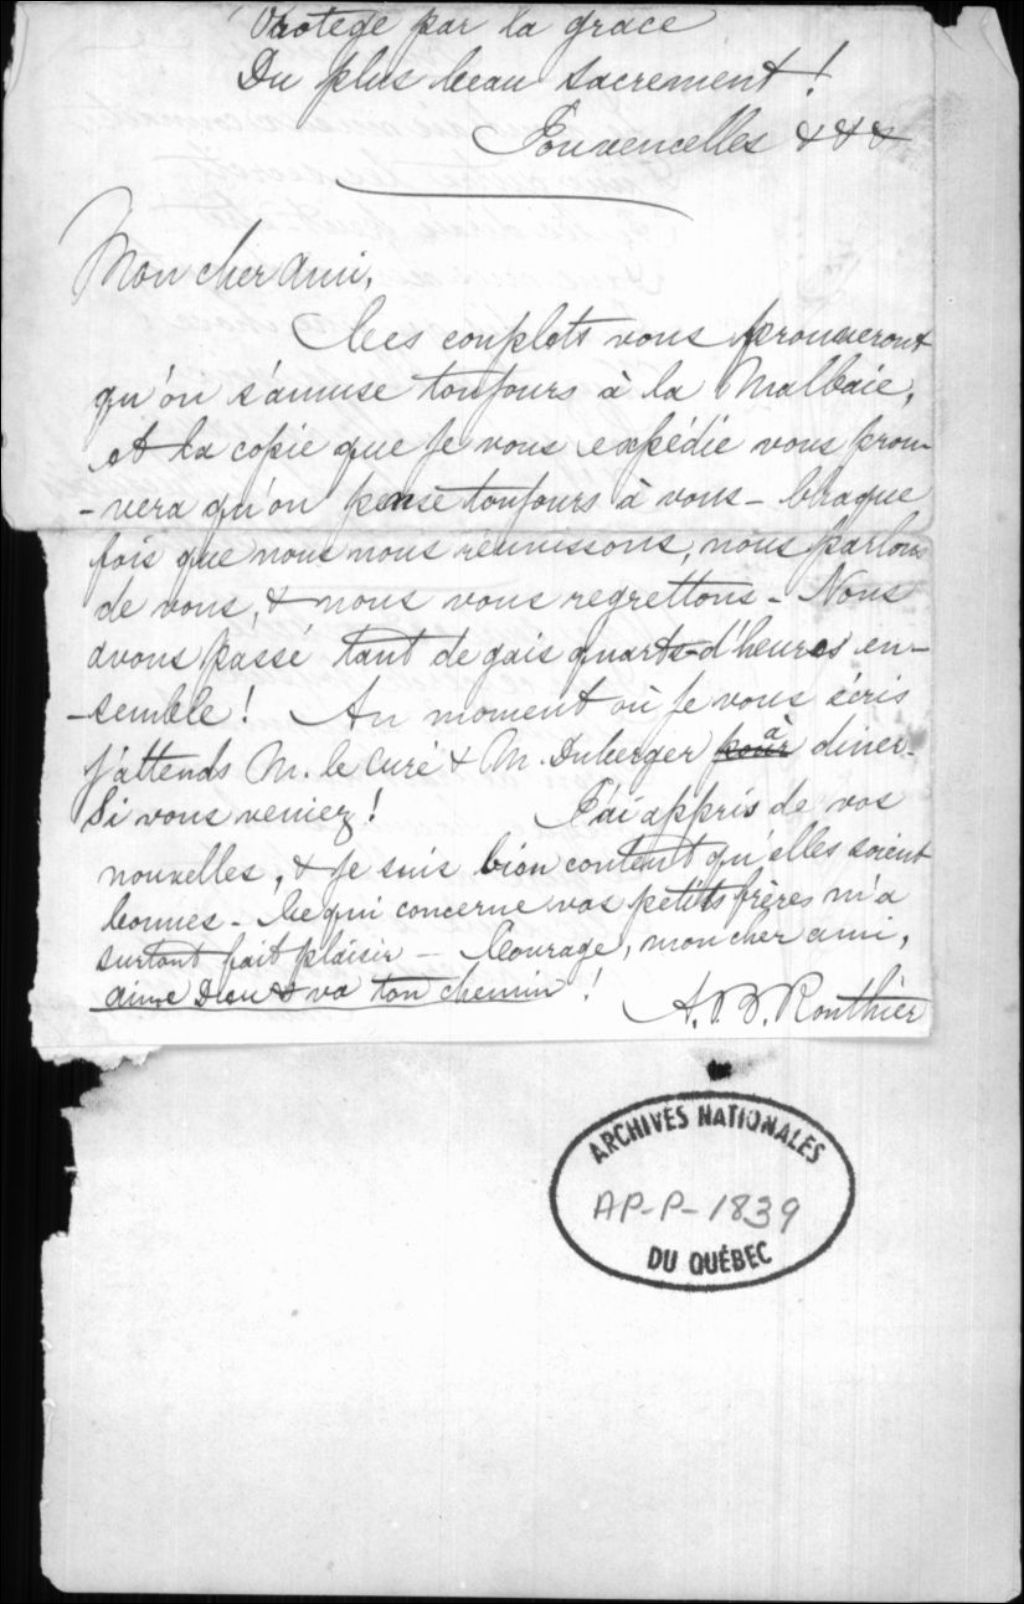 Protégé par la grace
Du plus beau sacrement !
Jouvencelles & & &
Mon cher ami,
Ces couplets vous prouveront
qu'on s'amuse toujours à la Malbaie,
et la copie que je vous expédie vous prou-
-vera qu'on pense toujours à vous – Chaque
fois que nous nous réunissons, nous parlons
de vous, & nous vous regrettons – Nous
avons passé tant de gais quarts-d'heures en-
-semble ! Au moment où je vous écris
j'attends M. le Curé & M. Duberger pour à diner.
Si vous veniez ! J'ai appris de vos
nouvelles, & je suis bien content qu'elles soient
bonnes – Ce qui concerne vos petits frères m'a
surtout fait plaisir – Courage, mon cher ami,
aime Dieu & va ton chemin !
A. B. Routhier
ARCHIVES NATIONALES
AP-P-1839
DU QUÉBEC